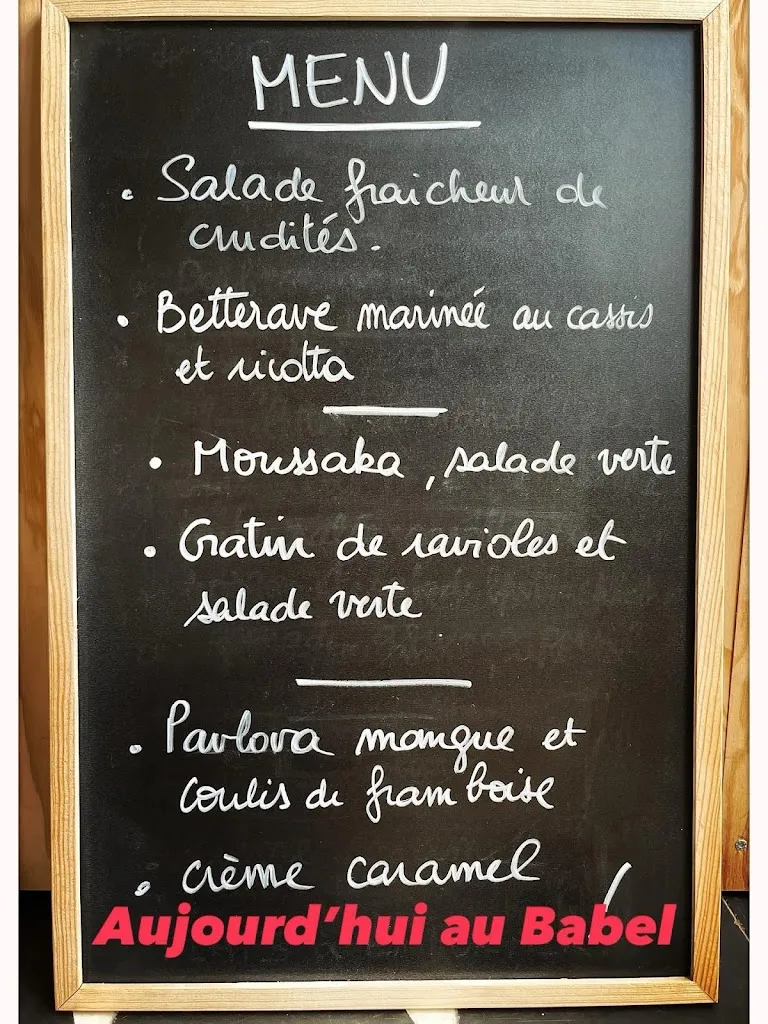 MENU
• Salade fraicheur de
crudités.
• Betterave marinée au cassis
et ricotta
• Moussaka, salade verte
• Gratin de ravioles et
salade verte
• Pavlova mangue et
coulis de framboise
• crème caramel
Aujourd'hui au Babel